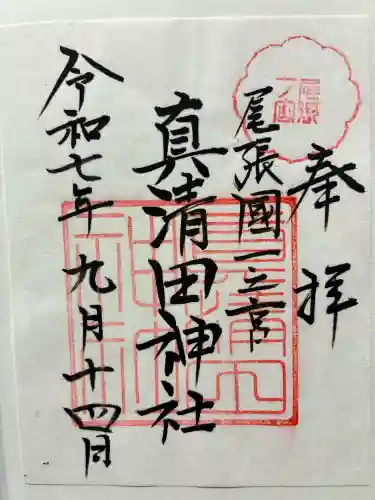 奉拝
尾張國一之宮
真清田神社
令和七年九月十四日
尾張
一宮